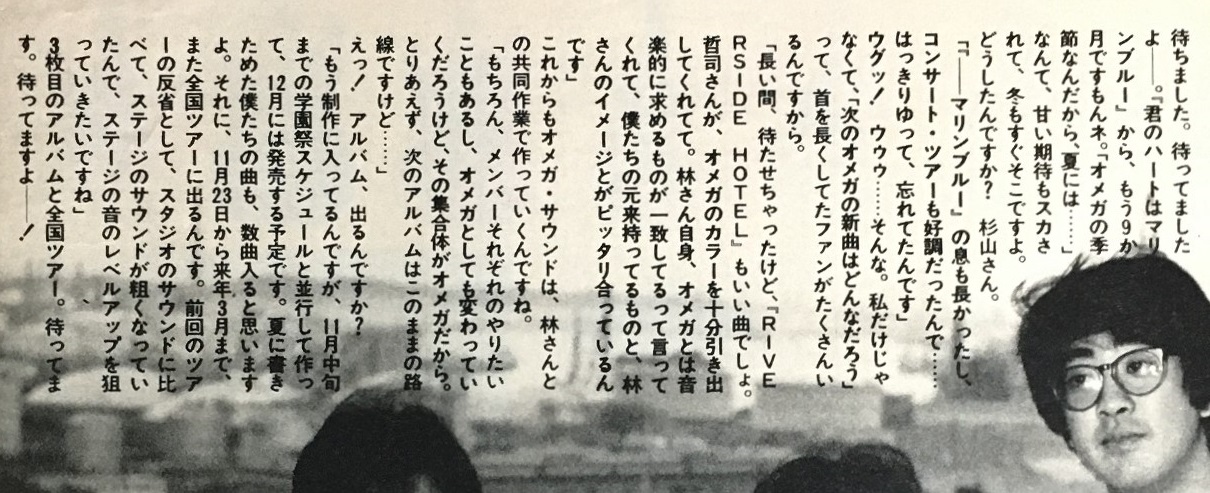 待ちました。待ってました
よ——。『君のハートはマリ
ンブルー』から、もう9か
月ですもんネ。「オメガの季
節なんだから、夏には……」
なんて、甘い期待もスカさ
れて、冬もすぐそこですよ。
どうしたんですか？　杉山さん。
「『——マリンブルー』の息も長かったし、
コンサート・ツアーも好調だったんで……
はっきりゆって、忘れてたんです」
ウグッ！　ウゥゥ……そんな。私だけじゃ
なくて、「次のオメガの新曲はどんなだろう」
って、首を長くしてたファンがたくさんい
るんですから。
「長い間、待たせちゃったけど、『RIVE
RSIDE HOTEL』もいい曲でしょ。
哲司さんが、オメガのカラーを十分引き出
してくれてて。林さん自身、オメガとは音
楽的に求めるものが一致してるって言って
くれて、僕たちの元来持ってるものと、林
さんのイメージとがピッタリ合っているん
です」
これからもオメガ・サウンドは、林さんと
の共同作業で作っていくんですね。
「もちろん、メンバーそれぞれのやりたい
こともあるし、オメガとしても変わってい
くだろうけど、その集合体がオメガだから。
とりあえず、次のアルバムはこのままの路
線ですけど……」
えっ！　アルバム、出るんですか？
「もう制作に入ってるんですが、11月中旬
までの学園祭スケジュールと並行して作っ
て、12月には発売する予定です。夏に書き
ためた僕たちの曲も、数曲入ると思います
よ。それに、11月23日から来年3月まで、
また全国ツアーに出るんです。前回のツア
ーの反省として、スタジオのサウンドに比
べて、ステージのサウンドが粗くなってい
たんで、ステージの音のレベルアップを狙
っていきたいですね」
3枚目のアルバムと全国ツアー。待ってま
す。待ってますよ——！